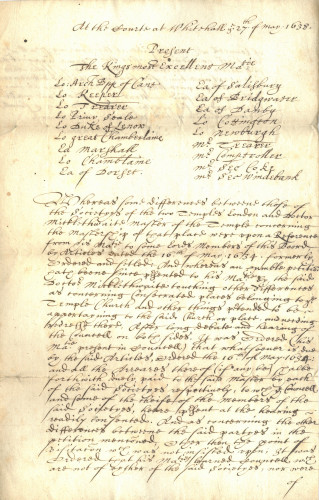 At the Courte at Whitehall ye 27th of may 1638.
Present
The Kings most Excellent Matie
Lo: Arch Bpp of Cant
Lo Keeper
Lo Trearer
Lo Privy Seale
Lo Duke of Lenox
Lo great Chamberlaine
Ea Marshall
Lo Chamblaine
Ea of Dorset.
Ea of Salisbury
Ea of Bridgwater
Ea of Danby
Lo Cottington
Lo Newburgh
mr Trearer
mr Comptroller
mr Sec Coke
mr Sec Windebank
Whereas some differences betweene those of
the Societyes of the two Temples London and Doctor
Micklethwaite master of the Temple concerning
the of that place were upon a Reference
from his Matie to some Lords Members of this Board
by Articles dated the 16th of May 1634. formerly
Ordered and setled. And whereas an humble peticon
hath beene since psented to his Matie by the said
Doctor Micklethwaite touching other differences
as concerning seperate places belonging to ye
Temple Church and other things ptended to be
appertayning to the said Church or place, una
redresse there. After long debate and hearing of
the Councell on both sides. It was Ordered (his
Matie present in Councell) that what should be due
by the said Articles, Ordered the 16 of May 1634
and all the Arreares there of (if any be) shalbe
forthwith duely paid to the said Master by each
of the said Societyes respectively to wch the Councell
and some of the cheife of the Members of the
said Societyes, beeing psent at the hearing
readily consented. And as concerning the other
differences betweene the said parties in the
peticon menconed, Wher then the point of
was not insisted upon: It was
Ordered that his Maties Learned Councell wch
are not of eyther of the said Societyes, nor were
of